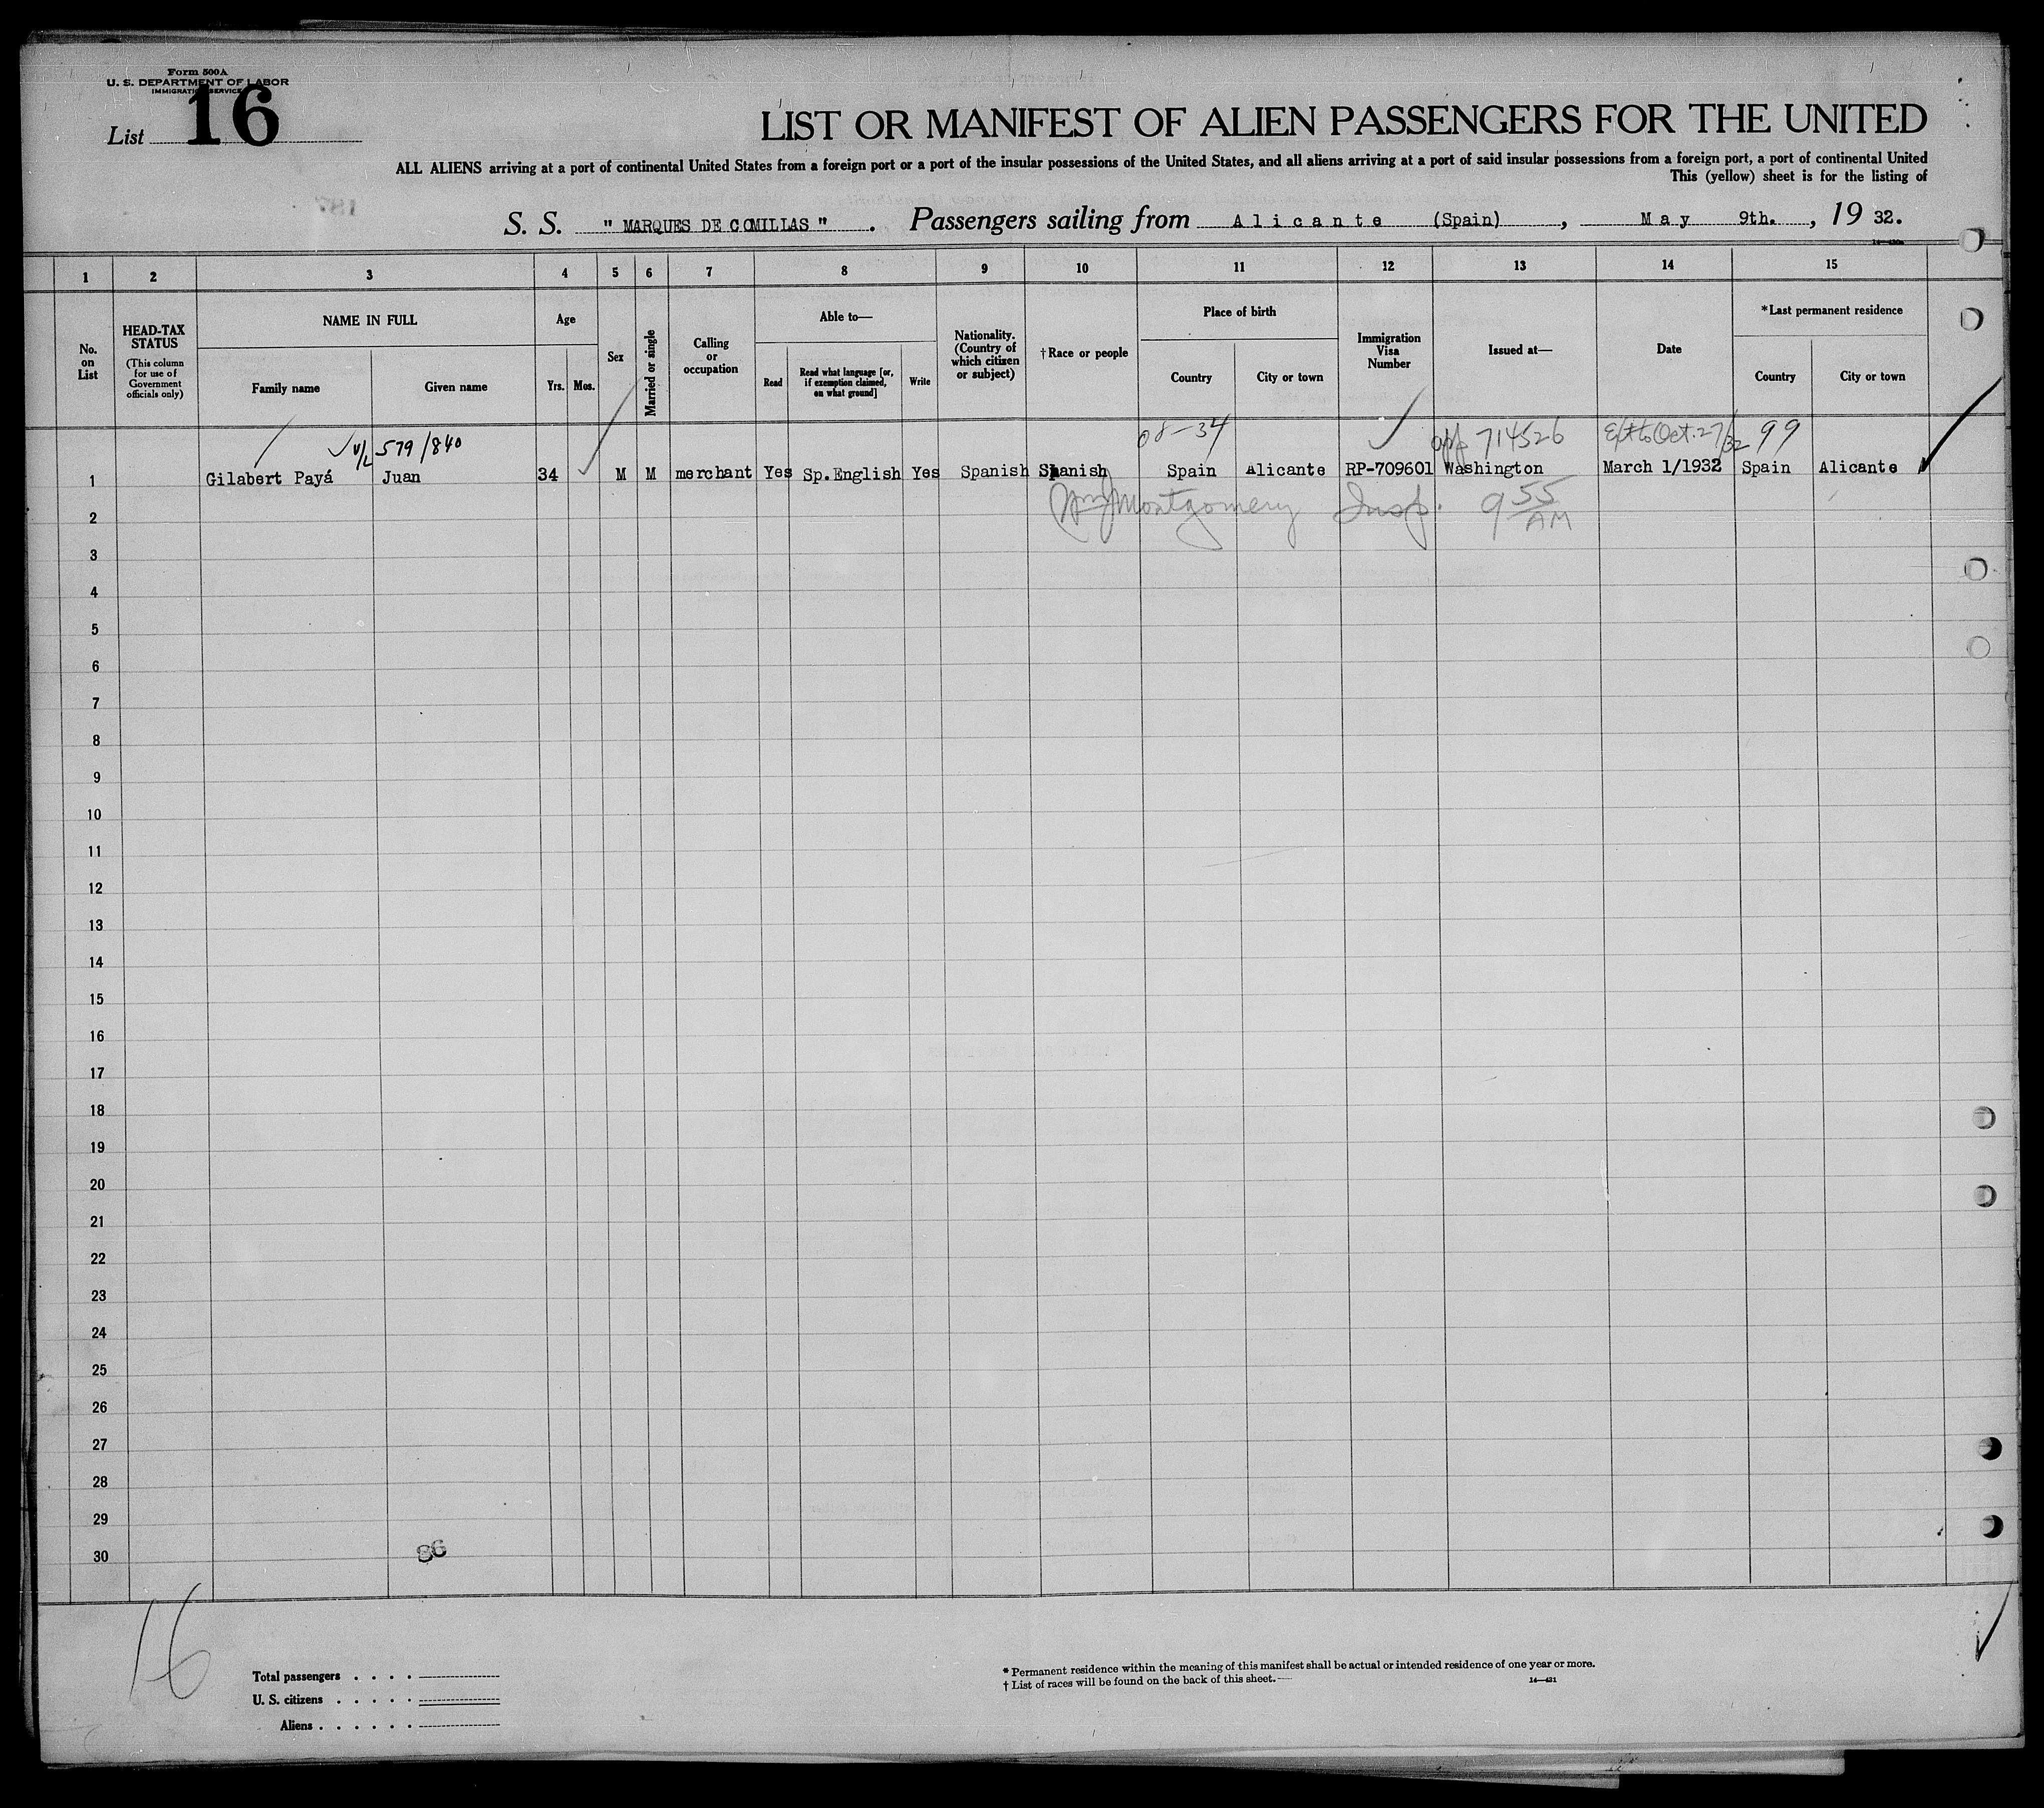 Form 500A
U. S. DEPARTMENT OF LABOR
IMMIGRATION SERVICE
List 16
LIST OR MANIFEST OF ALIEN PASSENGERS FOR THE UNITED
ALL ALIENS arriving at a port of continental United States from a foreign port or a port of the insular possessions of the United States, and all aliens arriving at a port of said insular possessions from a foreign port, a port of continental United
This (yellow) sheet is for the listing of
S. S. " MARQUES DE COMILLAS " . Passengers sailing from Alicante (Spain) , May 9th. , 19 32.
1 2 3 4 5 6 7 8 9 10 11 12 13 14 15
No. on List
HEAD-TAX STATUS
(This column for use of Government officials only)
NAME IN FULL
Family name
Given name
Age
Yrs.
Mos.
Sex
Married or single
Calling or occupation
Able to—
Read
Read what language [or, if exemption claimed, on what ground]
Write
Nationality. (Country of which citizen or subject)
† Race or people
Place of birth
Country
City or town
Immigration Visa Number
Issued at—
Date
*Last permanent residence
Country
City or town
579/840 08-34 714526 Oct. 27/32 99
1 Gilabert Payá Juan 34 M M merchant Yes Sp.English Yes Spanish Spanish Spain Alicante RP-709601 Washington March 1/1932 Spain Alicante
Montgomery Insp. 9 55 AM
2
3
4
5
6
7
8
9
10
11
12
13
14
15
16
17
18
19
20
21
22
23
24
25
26
27
28
29
30
86
16
Total passengers . . . .
U. S. citizens . . . . .
Aliens . . . . . .
* Permanent residence within the meaning of this manifest shall be actual or intended residence of one year or more.
† List of races will be found on the back of this sheet.
14—421